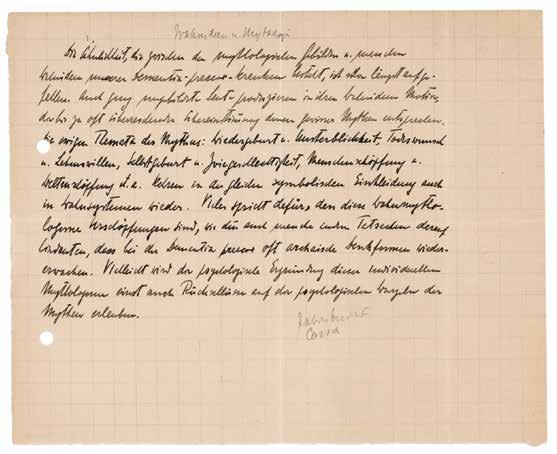 Wahnideen u. Mythologie
Die Ähnlichkeit, die zwischen den mythologischen Gebilden u. manchen
Wahnideen unserer Dementia-praecox-Kranken besteht, ist schon längst aufge-
fallen. Auch ganz ungebildete Leute produzieren in ihren Wahnideen Motive,
die bis zu oft überraschender Übereinstimmung denen gewisser Mythen entsprechen.
Die ewigen Themata des Mythus: Wiedergeburt u. Unsterblichkeit, Todeswunsch
u. Lebenswillen, Selbstgeburt u. Zwiegeschlechtigkeit, Menschenschöpfung u.
Weltenschöpfung u. a. kehren in der gleichen symbolischen Einkleidung auch
in Wahnsystemen wieder. Vieles spricht dafür, dass diese Wahnmytho-
logeme Urschöpfungen sind, wie denn auch manche andern Tatsachen darauf
hindeuten, dass bei der Dementia praecox oft archaische Denkformen wieder-
erwachen. Vielleicht wird der psychologische Ergründung dieser individuellen
Mythologeme einst auch Rückschlüsse auf der psychologischen Wurzeln der
Mythen erlauben.